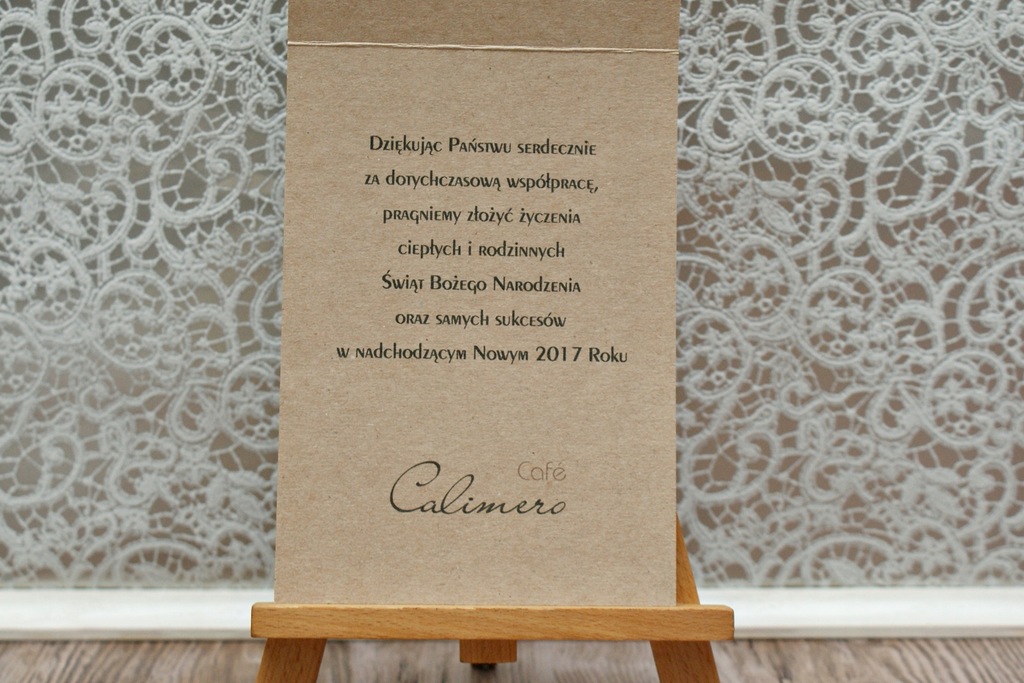 Dziękując Państwu serdecznie
za dotychczasową współpracę,
pragniemy złożyć życzenia
ciepłych i rodzinnych
Świąt Bożego Narodzenia
oraz samych sukcesów
w nadchodzącym Nowym 2017 Roku
Café
Calimero